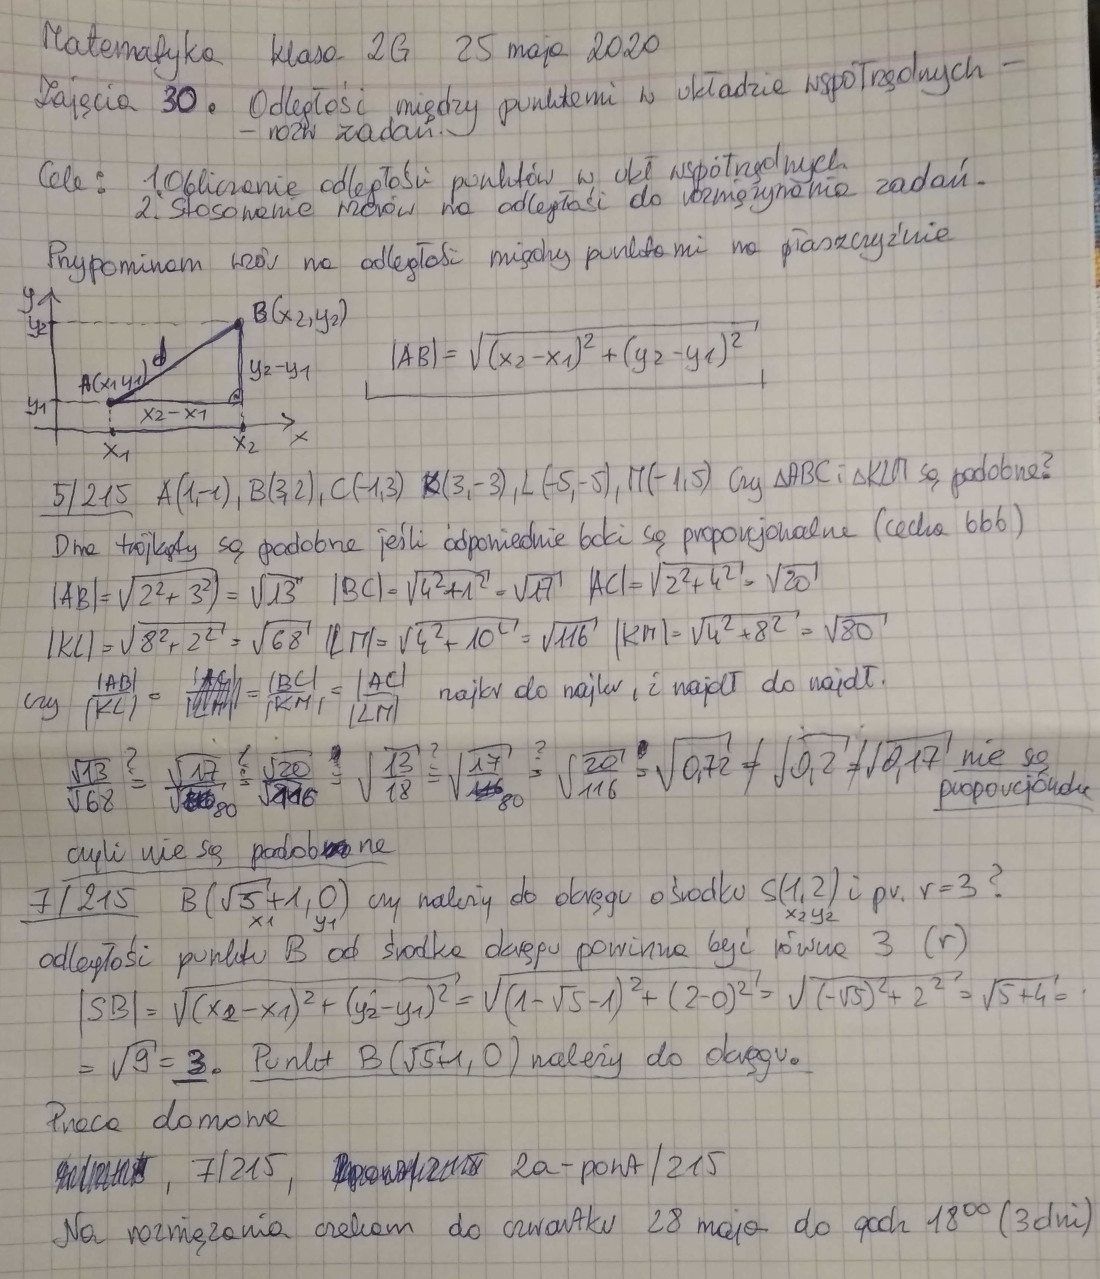 Matematyka klasa 2G 25 maja 2020
Zajęcia 30. Odległość między punktami w układzie współrzędnych -
- rozw zadań.
Cele: 1. Obliczanie odległości punktów w ukł współrzędnych
2. Stosowanie wzorów na odległość do rozwiązywania zadań.
Przypominam wzór na odległość między punktami na płaszczyźnie
y
y2
B(x2,y2)
A(x1,y1) d
y2-y1
|AB| = √(x2-x1)² + (y2-y1)²
y1
x2-x1
x1 x2 x
5/215 A(1,-1), B(3,2), C(-1,3) K(3,-3), L(-5,-5), M(-1,5) Czy △ABC i △KLM są podobne?
Dwa trójkąty są podobne jeśli odpowiednie boki są proporcjonalne (cecha bbb)
|AB| = √2²+3² = √13 |BC| = √4²+1² = √17 |AC| = √2²+4² = √20
|KL| = √8²+2² = √68 |LM| = √4²+10² = √116 |KM| = √4²+8² = √80
czy |AB|/|KL| = = |BC|/|KM| = |AC|/|LM| najkr do najkr, i najdł do najdł.
√13/√68 ?= √17/√80 ?= √20/√116 ?= √13/18 ?= √17/80 ?= √20/116 = √0,72 ≠ √0,2 ≠ √0,17 nie są
proporcjonalne
czyli nie są podobne
7/215 B(√5+1, 0) czy należy do okręgu o środku S(1,2) i pr. r=3?
x1 y1 x2 y2
odległość punktu B od środka okręgu powinna być równa 3 (r)
|SB| = √(x2-x1)² + (y2-y1)² = √(1-√5-1)² + (2-0)² = √(-√5)² + 2² = √5+4 =
= √9 = 3. Punkt B(√5+1, 0) należy do okręgu.
Praca domowa
, 7/215, 2a-ponA/215
Na rozwiązania czekam do czwartku 28 maja do godz 18⁰⁰ (3 dni)